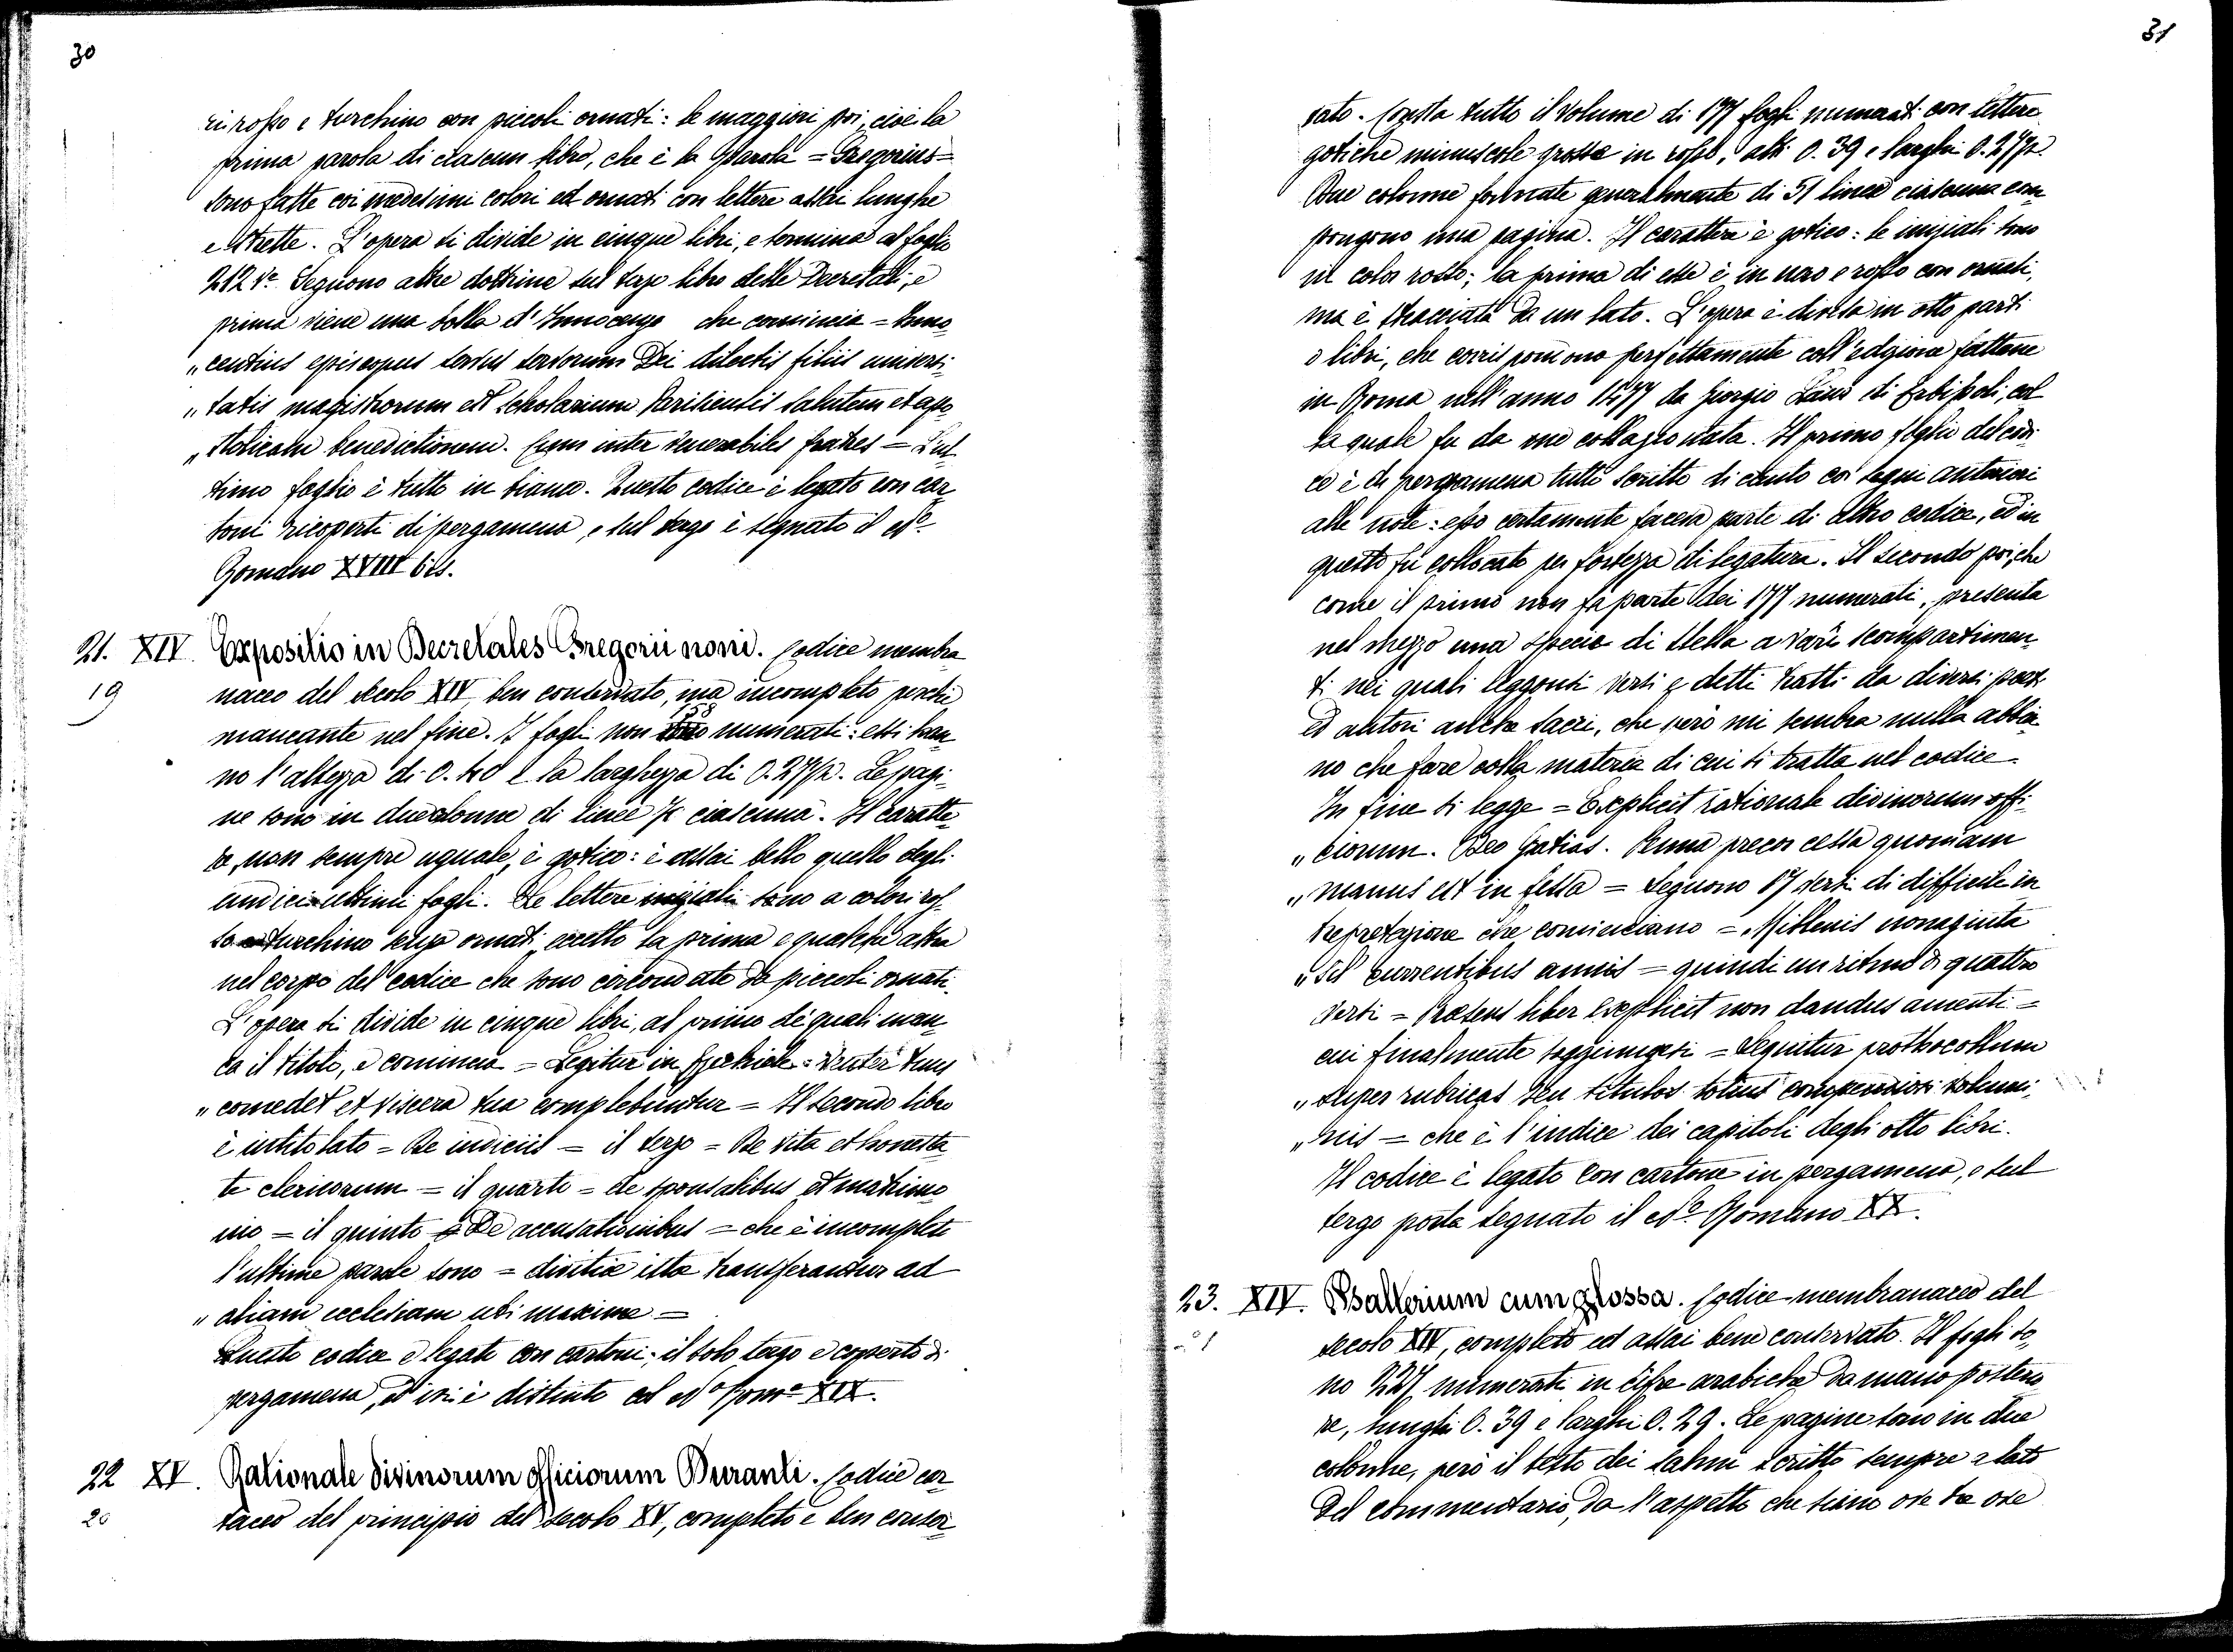 30
in rosso e turchino con piccoli ornati: le maggiori poi, cioè la
prima parola di ciascun libro, che è la parola = Gregorius =
sono fatte coi medesimi colori ed ornati con lettere assai lunghe
e strette. L'opera si divide in cinque libri, e termina al foglio
212 vº. Seguono altre dottrine sul terzo libro delle Decretali; e
prima viene una bolla d'Innocenzo che comincia = Inno
„centius episcopus servus servorum Dei dilectis filiis universi
„tatis magistrorum et scholarium Parisiensis salutem et apo
„stolicam benedictionem. Cum inter venerabiles fratres = L'ul
timo foglio è tutto in bianco. Questo codice è legato con car
toni ricoperti di pergamena, e sul tergo è segnato il Nº
Romano XVIII bis.
21. XIV. Expositio in Decretales Gregorii noni. Codice membra
19 naceo del secolo XIV, ben conservato, ma incompleto perchè
mancante nel fine. I fogli non sono 158 numerati: essi han
no l'altezza di 0.40 e la larghezza di 0.27½. Le pagi
ne sono in due colonne di linee ciascuna. Il caratte
re, non sempre uguale, è gotico: è assai bello quello degli
undici ultimi fogli. Le lettere iniziali sono a colori ros
so turchino senza ornati, eccetto la prima e qualche altra
nel corpo del codice che sono circondate da piccoli ornati.
L'opera si divide in cinque libri, al primo de' quali man
ca il titolo, e comincia = Legitur in Ezechiele: Venter tuus
„comedet et viscera tua complebuntur = Il secondo libro
è intitolato = De iudiciis = il terzo = De vita et honesta
te clericorum = il quarto = de sponsalibus et matrimo
nio = il quinto = De accusationibus = che è incompleto
l'ultime parole sono = divitiæ istæ transferantur ad
„aliam ecclesiam ubi maxime =
Questo codice è legato con cartoni; il solo tergo è coperto di
pergamena, ed ivi è distinto col Nº Romº XIX.
22 XV. Rationale divinorum officiorum Duranti. Codice car
20 taceo del principio del secolo XV, completo e ben conser
31
vato. Consta tutto il volume di 177 fogli numerati con lettere
gotiche minuscole grosse in rosso, alti 0.39 e larghi 0.27½.
Due colonne formate generalmente di 51 linea ciascuna com
pongono una pagina. Il carattere è gotico: le iniziali sono
in color rosso; la prima di esse è in nero e rosso con ornati,
ma è stracciata da un lato. L'opera è divisa in otto parti
o libri, che corrispondono perfettamente coll'edizione fattane
in Roma nell'anno 1477 da Giorgio Laur di Erbipoli, col
la quale fu da me collazionata. Il primo foglio del codi
ce è di pergamena tutto scritto di canto coi segni anteriori
alle note: esso certamente faceva parte di altro codice, ed in
questo fu collocato per fortezza di legatura. Il secondo poi, che
come il primo non fa parte dei 177 numerati, presenta
nel mezzo una specie di stella a varii scompartimen
ti nei quali leggonsi versi e detti tratti da diversi poeti
ed autori anche sacri, che però mi sembra nulla abbia
no che fare colla materia di cui si tratta nel codice.
In fine si legge = Explicit rationale divinorum offi
„ciorum. Deo gratias. Penna precor cessa quoniam
„manus est in fessa = Seguono 17 versi di difficile in
terpretazione che cominciano = Millenis nonaginta
„sex currentibus annis = quindi un ritmo di quattro
versi = Præsens liber explicit non dandus amenti =
cui finalmente soggiungesi = Sequitur prothocollum
„super rubricas seu titulos totius compendiosi volumi
„nis = che è l'indice dei capitoli degli otto libri.
Il codice è legato con cartone in pergamena, e sul
tergo porta segnato il Nº Romano XX.
23. XIV. Psalterium cum glossa. Codice membranaceo del
21 secolo XIV, completo ed assai bene conservato. Il fogli so
no 227 numerati in cifre arabiche da mano posterio
re, lunghi 0.39 e larghi 0.29. Le pagine sono in due
colonne, però il testo dei salmi scritto sempre a lato
del commentario, dà l'aspetto che siano ove tre ove